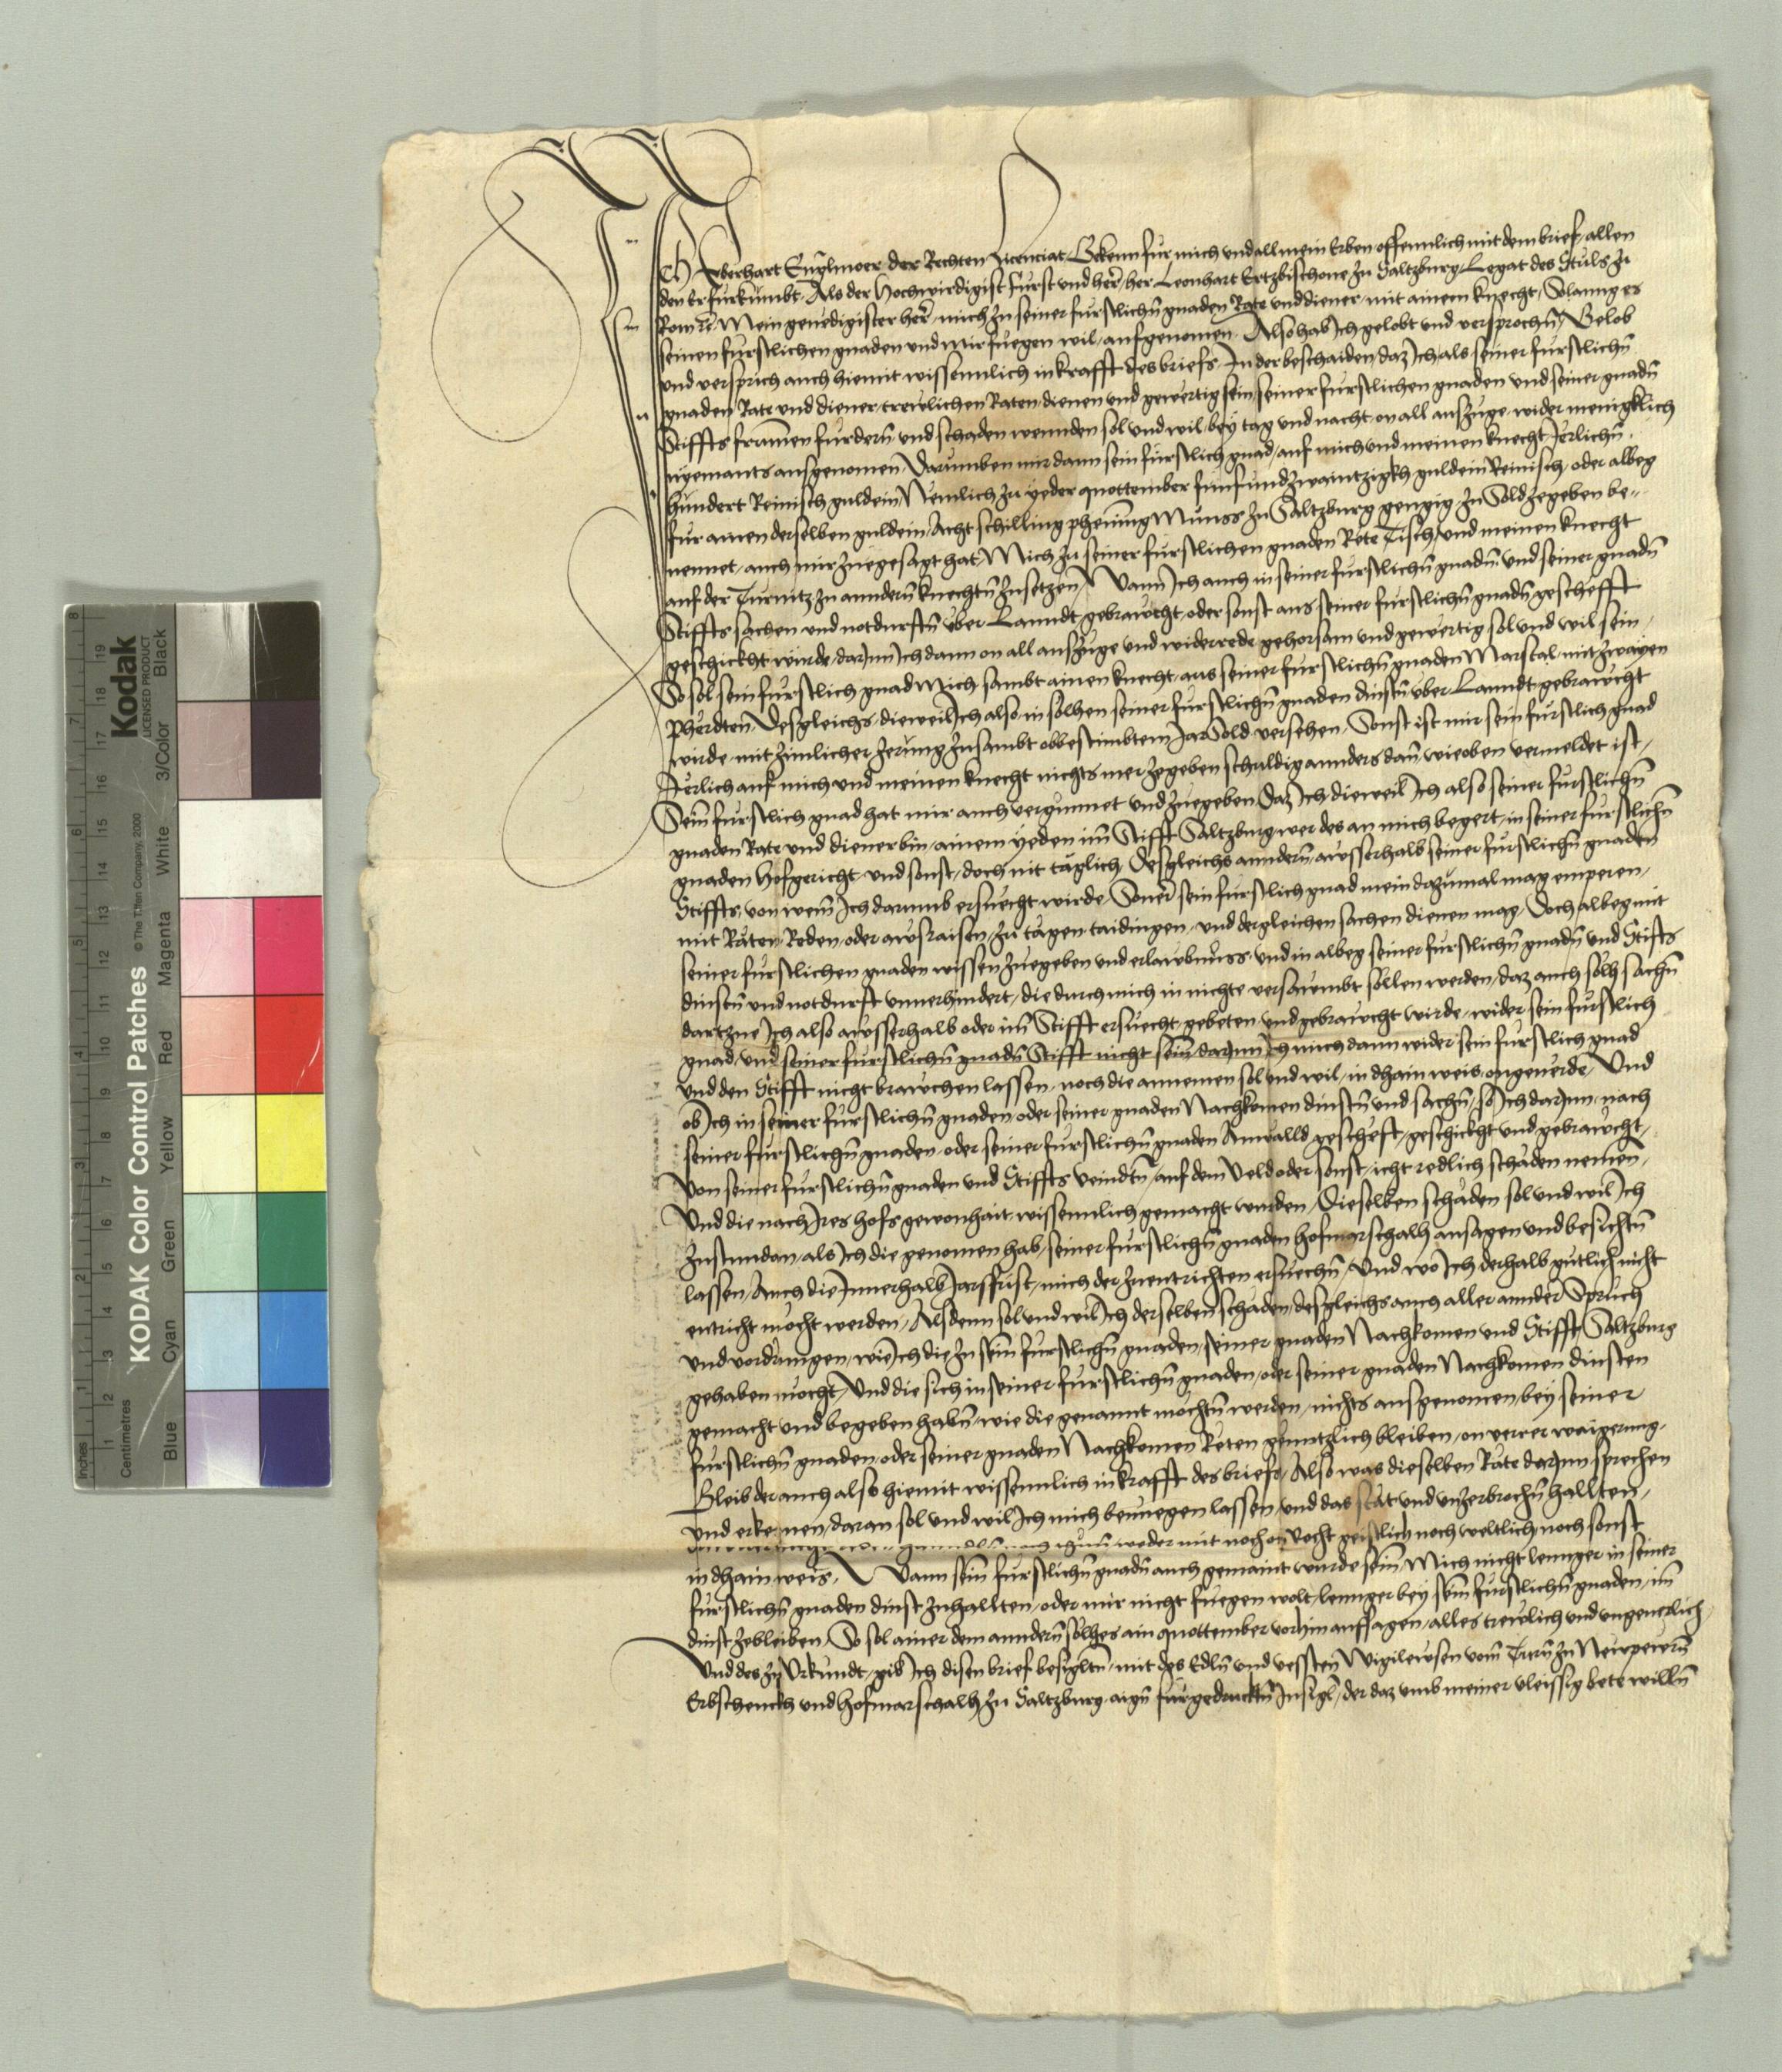 Ich Eberhart Englmoer der Rechten Licenciat Bekenn fur mich und all mein Erben offennlich mit dem brief allen
den Er furkumbt. Als der Hochwirdigist Furst und herr, her Leonhart Ertzbischove zu Saltzburg Legat des Stuls zu
Rom etc Mein genedigister herr, mich zu seiner furstlichn gnaden Rate und diener, mit ainem knecht, Solanng es
seinen furstlichen gnaden und mir fuegen wil, aufgenomen. Also hab Ich gelobt und versprochn, Gelob
und versprich auch hiemit wissennlich in krafft des briefs, In der beschaiden, daz Ich als seiner furstlichn
gnaden Rate und diener, trewlichen Raten, dienen und gewertig sein, seiner furstlichen gnaden und seiner gnadn
Stiffts frumen furdern und schaden wennden sol und wil, bey tag und nacht, on all auszuge, wider menigklich
nyemants ausgenomen, Darumben mir dann sein furstlich gnad, auf mich und meinen knecht Jerlichn
hundert Reinisch guldein, Nemlich zu yeder quottember funfundzwaintzigkh guldein Reinisch, oder albeg
fur ainen derselben guldein, Acht schilling phening Munss zu Saltzburg gengig zu Sold zegeben be-
nennet, auch mir zuegesagt hat, Mich zu seiner furstlichen gnaden Rete Tisch, und meinen knecht
auf der Turnitz zu anndern knechtn zusetzen, Wann Ich auch in seiner furstlichn gnadn und seiner gnadn
Stiffts sachen und notdurftn uber Lanndt gebrawcht, oder sonst aus seiner furstlichn gnadn geschefft
geschickht wurde, darynn Ich dann on all auszuge und widerrede gehorsam und gewertig sol und wil sein,
So sol sein furstlich gnad Mich sambt ainen knecht, aus seiner furstlichn gnaden Marstal mit zwayen
Pherdten, Desgleichs, dieweil Ich also in solhen seiner furstlichn gnaden dinstn uber Lanndt gebrawcht
wirde, mit zimlicher zerung zusambt obbestimbtem JarSold versehen, Sonst ist mir sein furstlich gnad
Jerlich auf mich und meinen knecht nichts mer zegeben schuldig annders dan wie oben vermeldet ist,
Sein furstlich gnad hat mir auch vergunnet und zuegeben, Daz Ich dieweil Ich also seiner furstlichn
gnaden Rate und diener bin, ainem yeden im Stifft Saltzburg, wer des an mich begert, in seiner furstlichn
gnaden Hofgericht und sonst, doch nit taglich, Desgleichs anndern, ausserhalb seiner furstlichn gnaden
Stiffts, von wem Ich darumb ersuecht wirde, Soverr sein furstlich gnad mein dazumal mag emperen,
mit Raten, Reden, oder awsraisen, zu tagen, taidingen, und dergleichen sachen dienen mag, Doch albeg mit
seiner furstlichen gnaden wissen, zuegeben und erlawbnuss, und in albeg seiner furstlichn gnadn und Stifts
dinstn und notdurft unverhindert, die durch mich in nichte versawmbt sollen werden, daz auch solh sachn
dartzue Ich also awsserhalb oder im Stifft ersuecht, gebeten und gebrawcht wirde, wider sein furstlich
gnad, und seiner furstlichn gnadn Stifft nicht sein, darynn Ich mich dann wider sein furstlich gnad
und den Stifft nicht brawchen lassen, noch die annemen sol und wil, in dhain weis, ongeverde, Und
ob Ich in seiner furstlichn gnaden, oder seiner gnaden Nachkomen dinstn und sachn, so Ich darynn, nach
seiner furstlichn gnaden, oder seiner furstlichn gnaden Anwalld gescheft, geschickht und gebrawcht,
Von seiner furstlichn gnaden und Stiffts veindtn, auf dem Veld oder sonst, icht redlich schaden nemen,
Und die nach Ires hofs gewonhait wissennlich gemacht wurden, Dieselben schaden sol und wil Ich
zustundan, als Ich die genomen hab, seiner furstlichn gnaden hofmarschalh ansagen und besichtn
lassen, Auch die Innerhalb Jarsfrist, mich der zuentrichten ersuechn, Und wo Ich derhalb gutlich nicht
entricht mocht werden, Alsdenn sol und wil Ich derselben schaden, desgleichs auch aller annder Spruch
und vordrungen, wie Ich die zu sein furstlichn gnaden, seiner gnaden Nachkomen und Stifft Saltzburg
gehaben mocht, Und die sich in seiner furstlichn gnaden, oder seiner gnaden Nachkomen dinsten
gemacht und begeben habn, wie die genannt mochtn werden, nichts ausgenomen, bey seiner
furstlichn gnaden, oder seiner gnaden Nachkomen Reten genntzlich bleiben, on verrer waigerung,
Bleib der auch also hiemit wissennlich in krafft des briefs, Also was dieselben Rate darynn sprechen
und erkennen, daran sol und wil Ich mich benuegen lassen, und das stat und unzerbrochn hallten,
weder mit noch on Recht geistlich noch weltlich, noch sonst
in dhain weis, Wann sein furstlichn gnadn auch gemaint wurde sein, Mich nicht lennger in seiner
furstlichn gnaden dinst zuhallten, oder mir nicht fuegen wolt, lennger bey sein furstlichn gnaden, im
dinst zebleiben, So sol ainer dem anndern solhes ain quottember vorhin aufsagen, alles trewlich und ungeverlich,
Und des zu Urkundt, gib Ich disen brief besigltn, mit des Edln und vessten Wigilewsen vom Turn zu Newpewrn
Erbschenckh und hofmarschalh zu Saltzburg, aign furgedrucktn Insigl, der daz umb meiner vleissig bete willn
KODAK Color Control Patches
© The Tiffen Company, 2000
Kodak
LICENSED PRODUCT
Blue Cyan Green Yellow Red Magenta White 3/Color Black
Centimetres 1 2 3 4 5 6 7 8 9 10 11 12 13 14 15 16 17 18 19
Inches 1 2 3 4 5 6 7 8